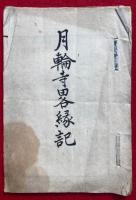 月輪寺畧縁記